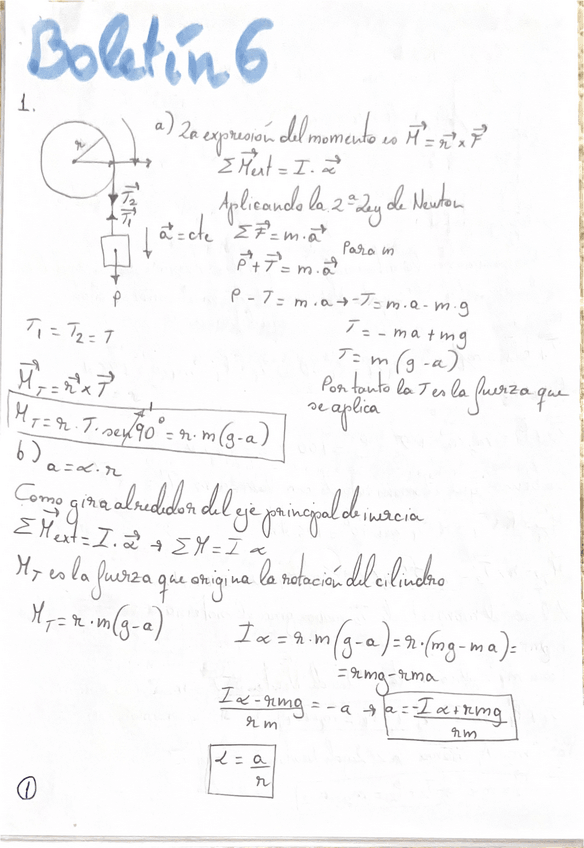 Boletín 6
1.
r
a) La expresión del momento es M⃗ = r⃗ x F⃗
ΣM⃗ext = I · α⃗
Aplicando la 2ª Ley de Newton
T⃗2
T⃗1
a⃗ = cte
ΣF⃗ = m · a⃗
Para m
P⃗ + T⃗ = m · a⃗
P
P - T = m · a → -T = m · a - m · g
T1 = T2 = T
T = - ma + mg
T = m (g - a)
Por tanto la T es la fuerza que
se aplica
M⃗T = r⃗ x T⃗
MT = r · T · sen 90° = r · m (g - a)
1
b)
a = α · r
Como gira alrededor del eje principal de inercia
ΣM⃗ext = I · α⃗ → ΣM = I α
MT es la fuerza que origina la rotación del cilindro
MT = r · m (g - a)
I α = r · m (g - a) = r · (mg - ma) =
= rmg - rma
Iα - rmg / rm = -a → a = -Iα + rmg / rm
α = a / r
①